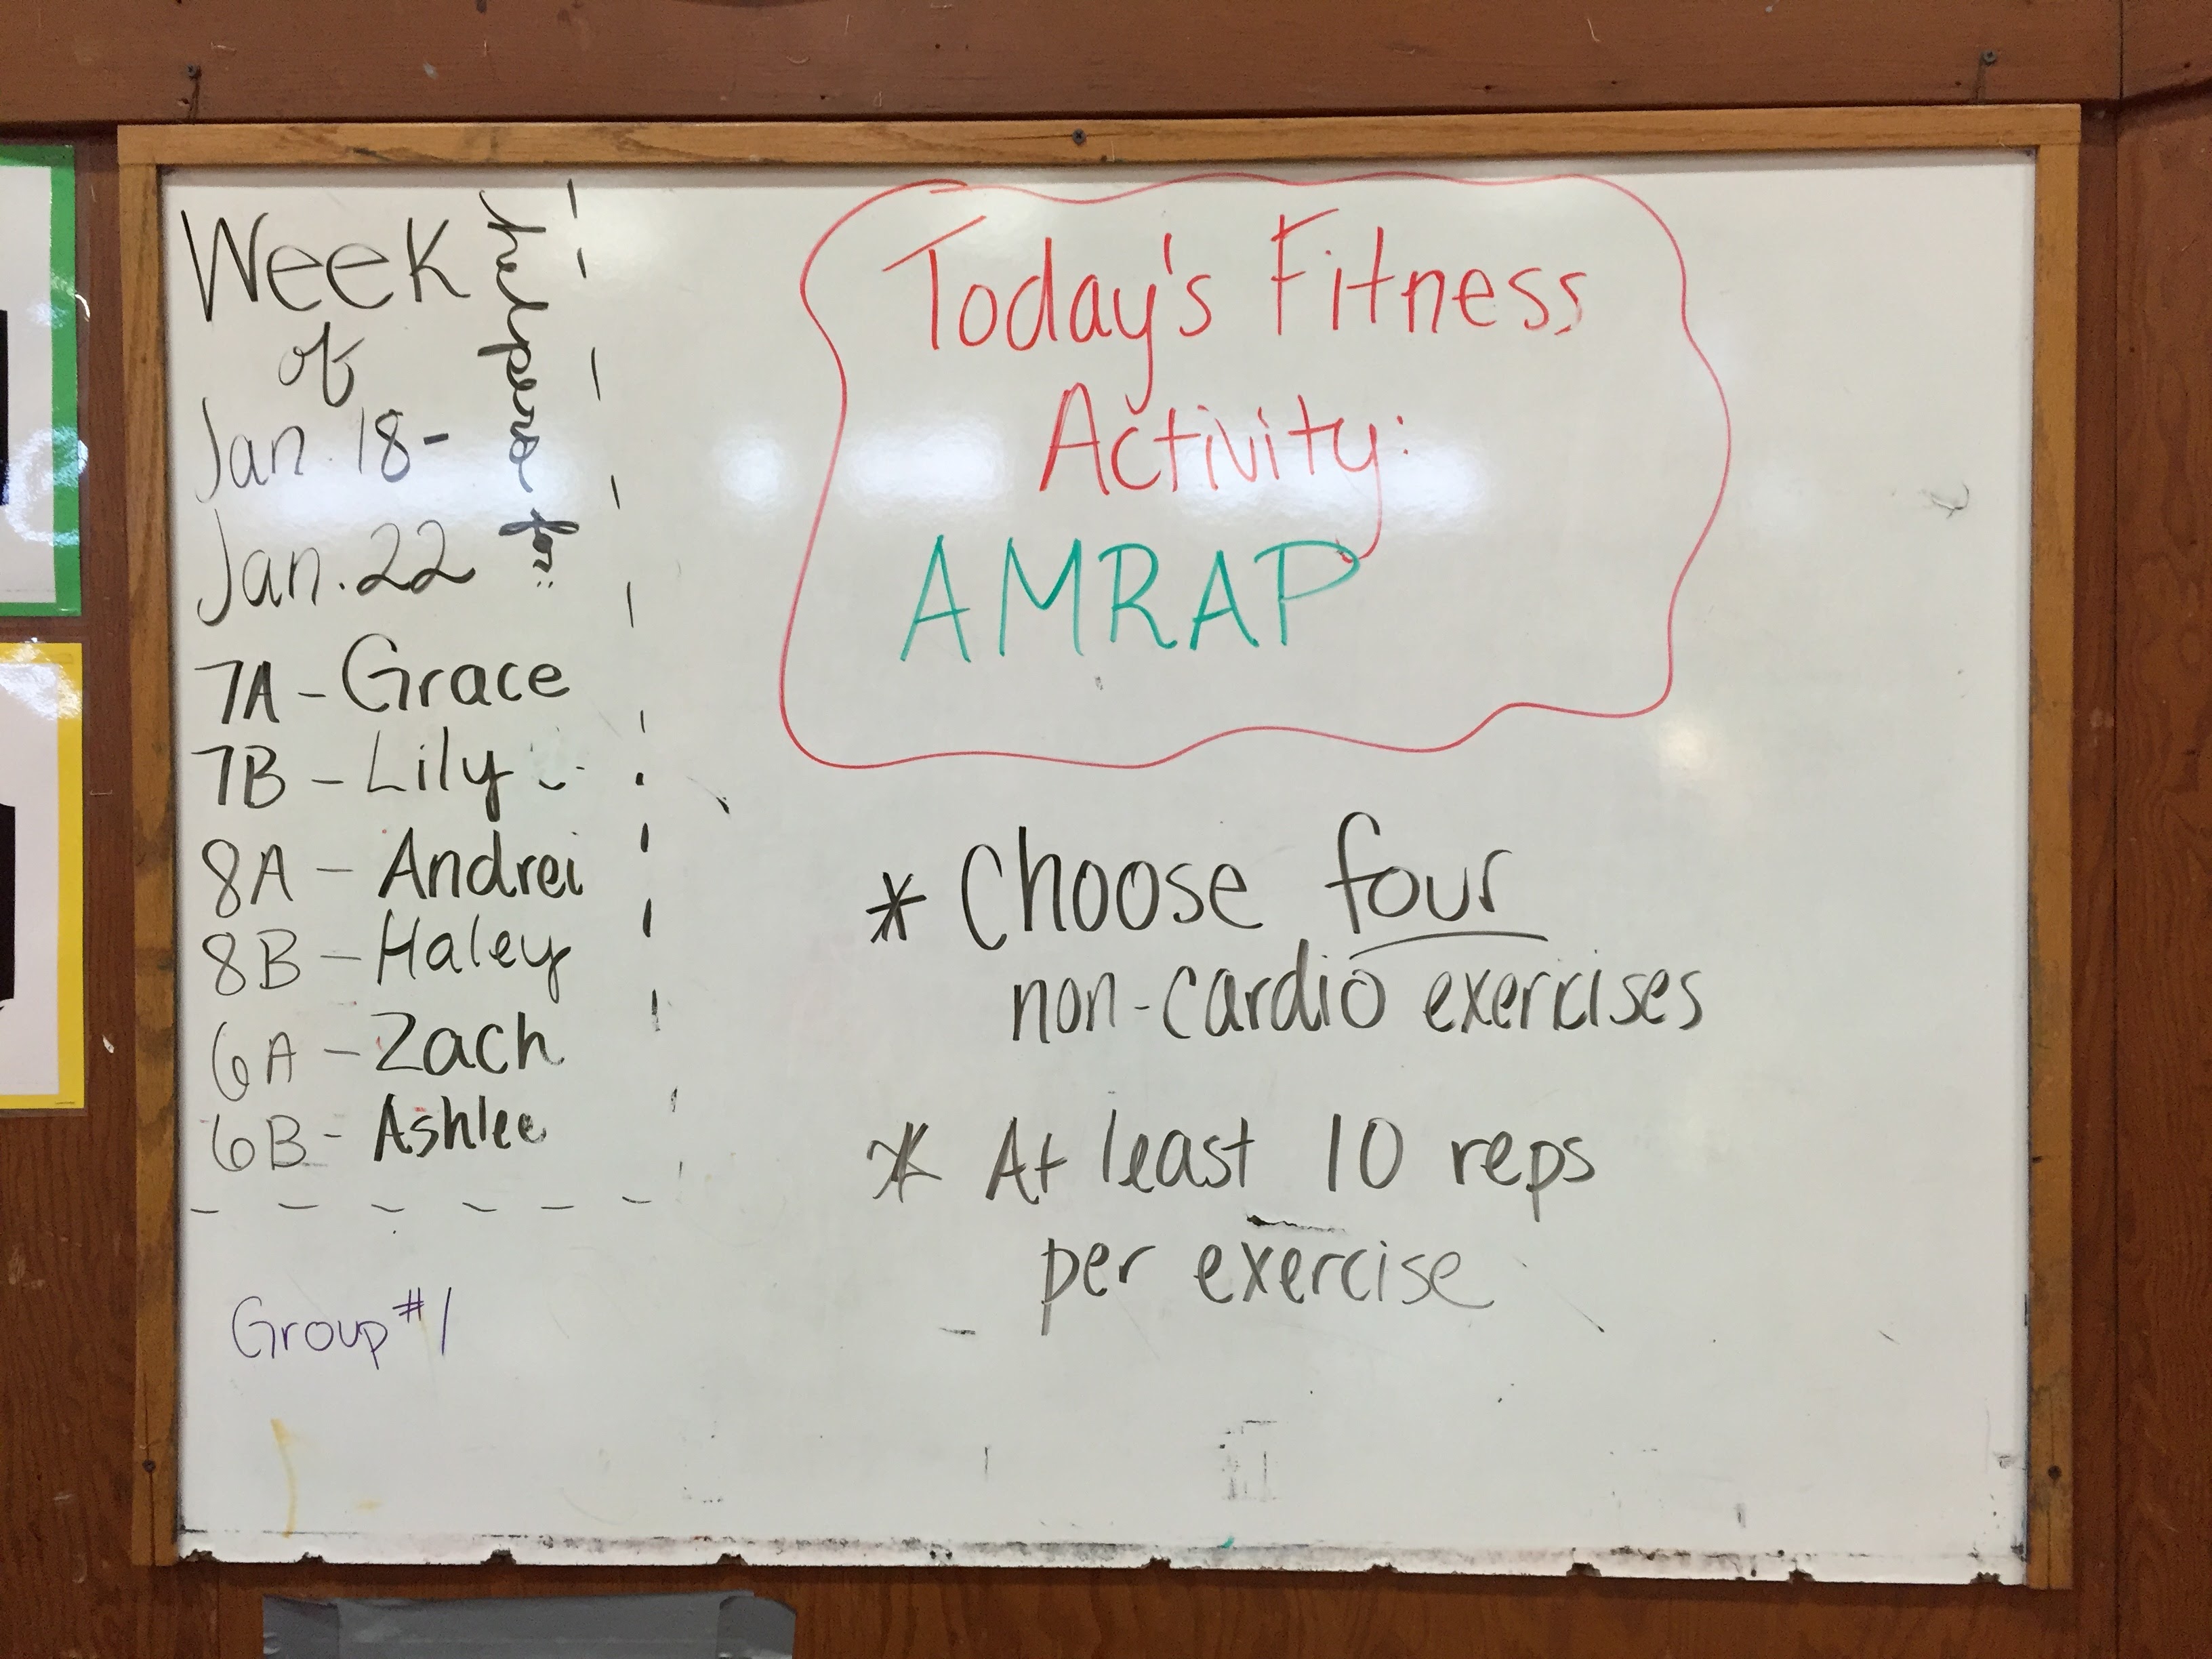 helpers for:
Week
of
Jan. 18-
Jan. 22
7A - Grace
7B - Lily
8A - Andrei
8B - Haley
6A - Zach
6B - Ashlee
Group #1
Today's Fitness
Activity:
AMRAP
* Choose four
non-cardio exercises
* At least 10 reps
per exercise